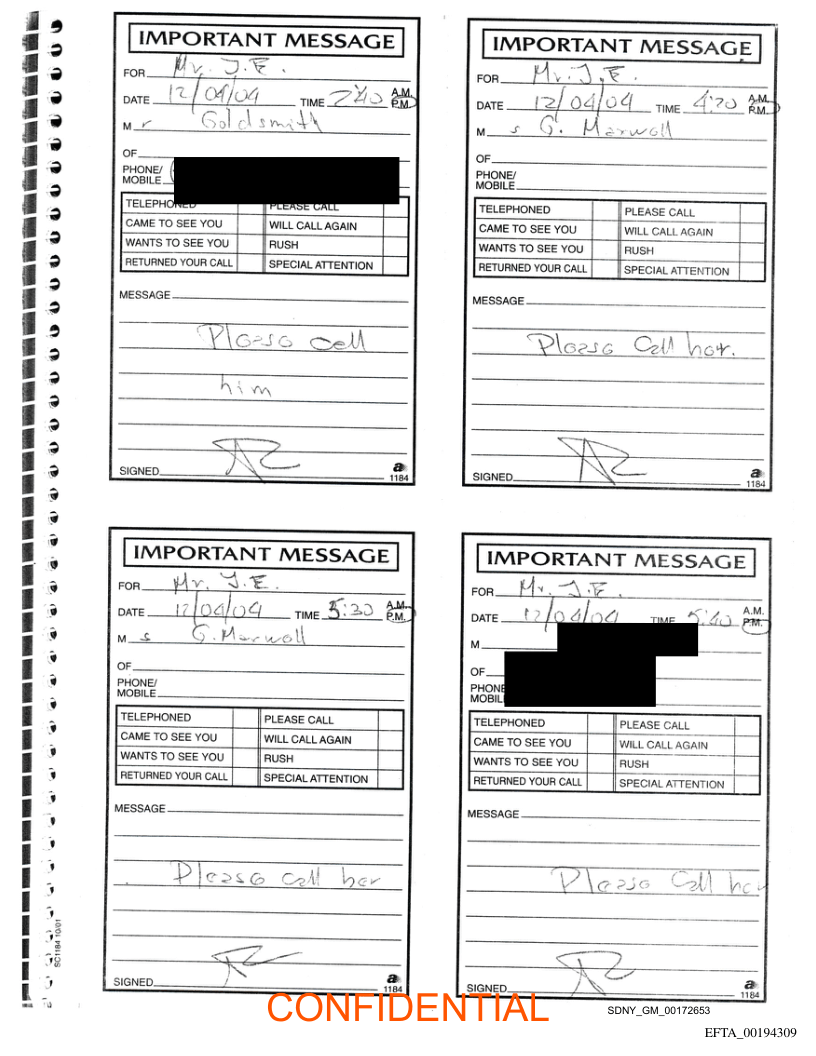 IMPORTANT MESSAGE
FOR Mr. J.E.
DATE 12/04/04 TIME 2:40 A.M. P.M.
M r Goldsmith
OF
PHONE/
MOBILE
TELEPHONED PLEASE CALL
CAME TO SEE YOU WILL CALL AGAIN
WANTS TO SEE YOU RUSH
RETURNED YOUR CALL SPECIAL ATTENTION
MESSAGE
Please call
him
SIGNED
a
1184
IMPORTANT MESSAGE
FOR Mr. J.E.
DATE 12/04/04 TIME 4:20 A.M. P.M.
M s G. Maxwell
OF
PHONE/
MOBILE
TELEPHONED PLEASE CALL
CAME TO SEE YOU WILL CALL AGAIN
WANTS TO SEE YOU RUSH
RETURNED YOUR CALL SPECIAL ATTENTION
MESSAGE
Please Call her.
SIGNED
a
1184
IMPORTANT MESSAGE
FOR Mr. J.E.
DATE 12/04/04 TIME 5:30 A.M. P.M.
M s G. Maxwell
OF
PHONE/
MOBILE
TELEPHONED PLEASE CALL
CAME TO SEE YOU WILL CALL AGAIN
WANTS TO SEE YOU RUSH
RETURNED YOUR CALL SPECIAL ATTENTION
MESSAGE
Please call her
SIGNED
a
1184
IMPORTANT MESSAGE
FOR Mr. J.E.
DATE 12/04/04 TIME 5:40 A.M. P.M.
M
OF
PHONE
MOBIL
TELEPHONED PLEASE CALL
CAME TO SEE YOU WILL CALL AGAIN
WANTS TO SEE YOU RUSH
RETURNED YOUR CALL SPECIAL ATTENTION
MESSAGE
Please Call her
SIGNED
a
1184
SC1184 10/01
CONFIDENTIAL
SDNY_GM_00172653
EFTA_00194309